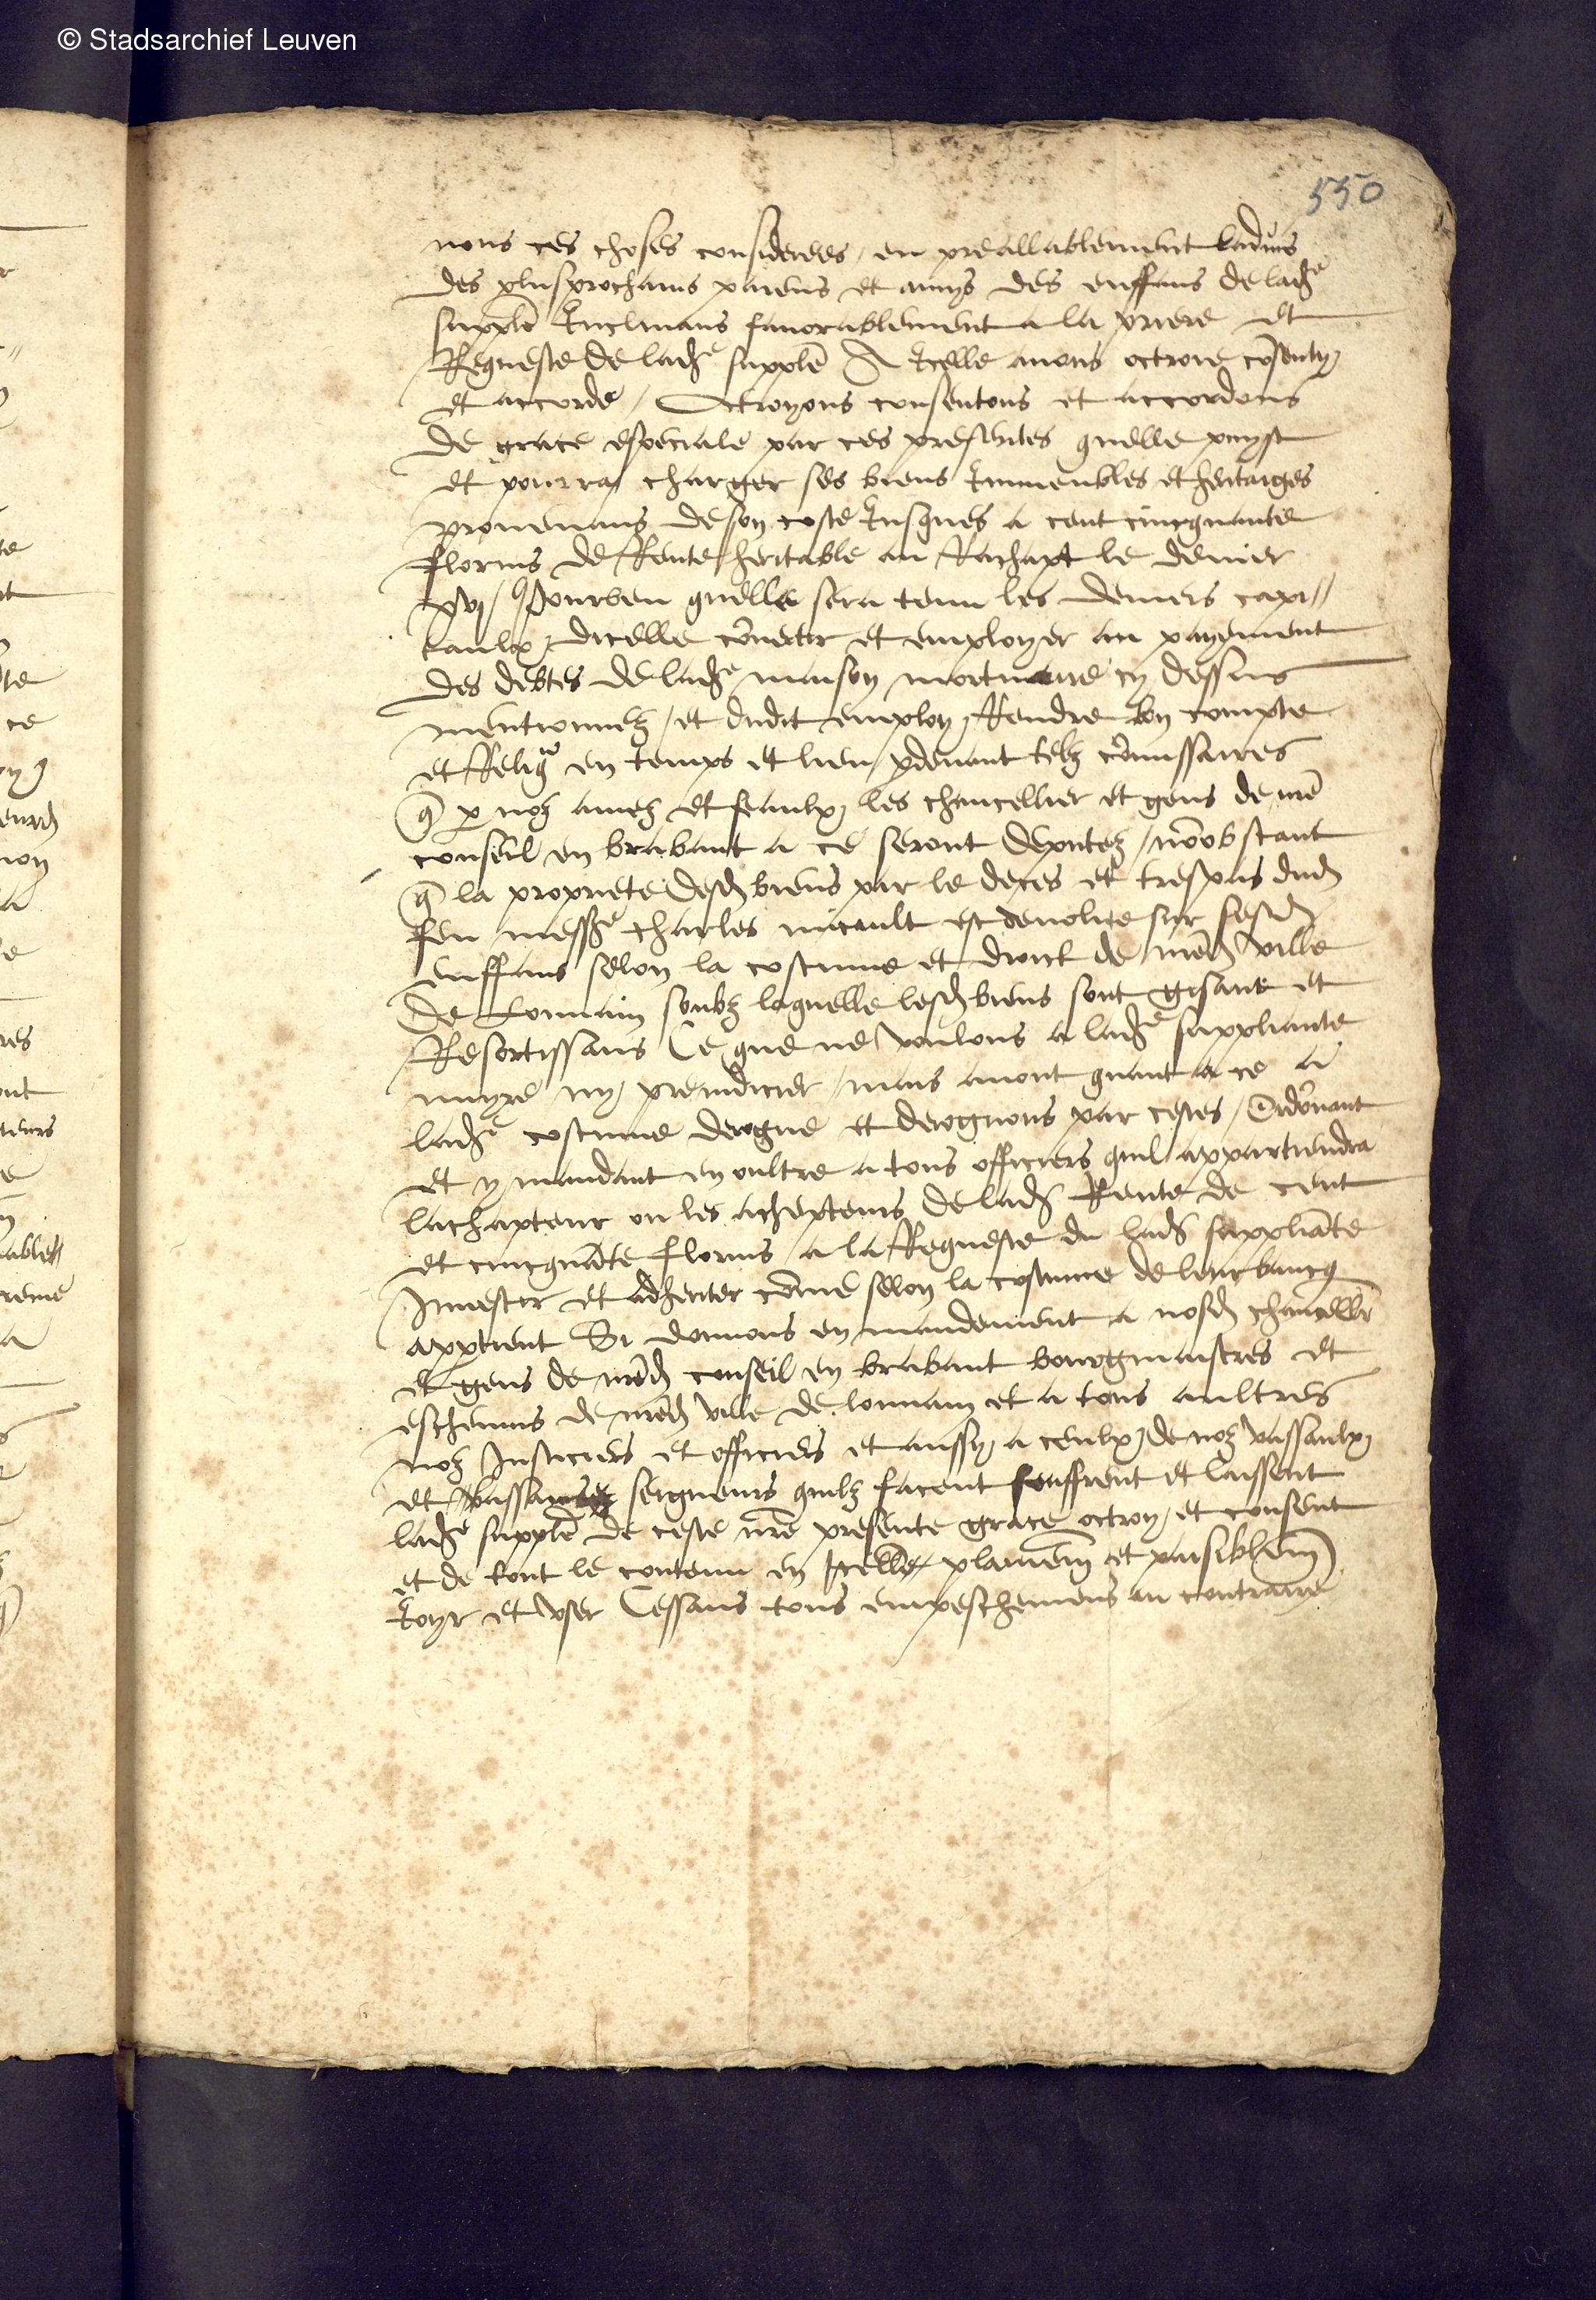 © Stadsarchief Leuven
550
nous ces choses considerees / eu preallablement ladvis
des plusprochains parens et amys des enffans de lad{e}
supplē Inclinans favorablement a la priere et
Requeste de lad{e} supplē A Icelle avons octroie cōsenty
et accorde / Octroyons consentons et accordons
de grace especiale par ces presentes quelle puyst
et pourra charger ses biens Immeubles et heritaiges
provenans de son coste Jusques a cent cincquante
florins de Rente heritable au Rachapt le denier
xvj / Pourveu quelle sera tenu les deniers capi//
taulx dicelle cōvertir et employer au payement
des debtes de lad{e} maison mortuaire cy dessus
mentionnez / et dudit employ Rendre bon compte
et Reliq{a} en temps et lieu / pdevant telz cōmissaires
q̄ p noz amez et feaulx les chancellier et gens de nrē
conseil en brabant a ce seront deputez / nōobstant
q̄ la propriete desd biens par le deces et trespas dud
feu mess{e} charles micault est devolute sur sesd
enffans selon la costume et droict de nrēd ville
de Louvain soubz laquelle lesd biens sont gisans et
Resortissans Ce que ne voulons a lad{e} suppliante
nuyre ny preiudicier / mais avont quant a ce a
lad{e} costume derogue et deroguons par cestes / Ordōnant
et y mandant en oultre a tous officiers quil appartiendra
lachapteur ou les achepteurs de lad Rente de cent
et cincquāte florins a la Requeste du lad suppliāte
Investir et adheriter cōme selon la costume de leur bancq
appertient Si donnons en mandement a nosd chancellr̄
et gens de nrēd conseil en brabant bourgmaistres et
eschevins de nrēd ville de louvain et a tous aultres
noz Justiciers et officiers et aussy a ceulx de noz vassaulx
et seigneurs quilz facent seuffrent et laissent
lad{e} supplē de ceste nrē presente grace octroy et consent
et de tout le contenu en Icelle plainem̄ et paisiblem̄
Joyr et user Cessans tous empeschemens au contraire